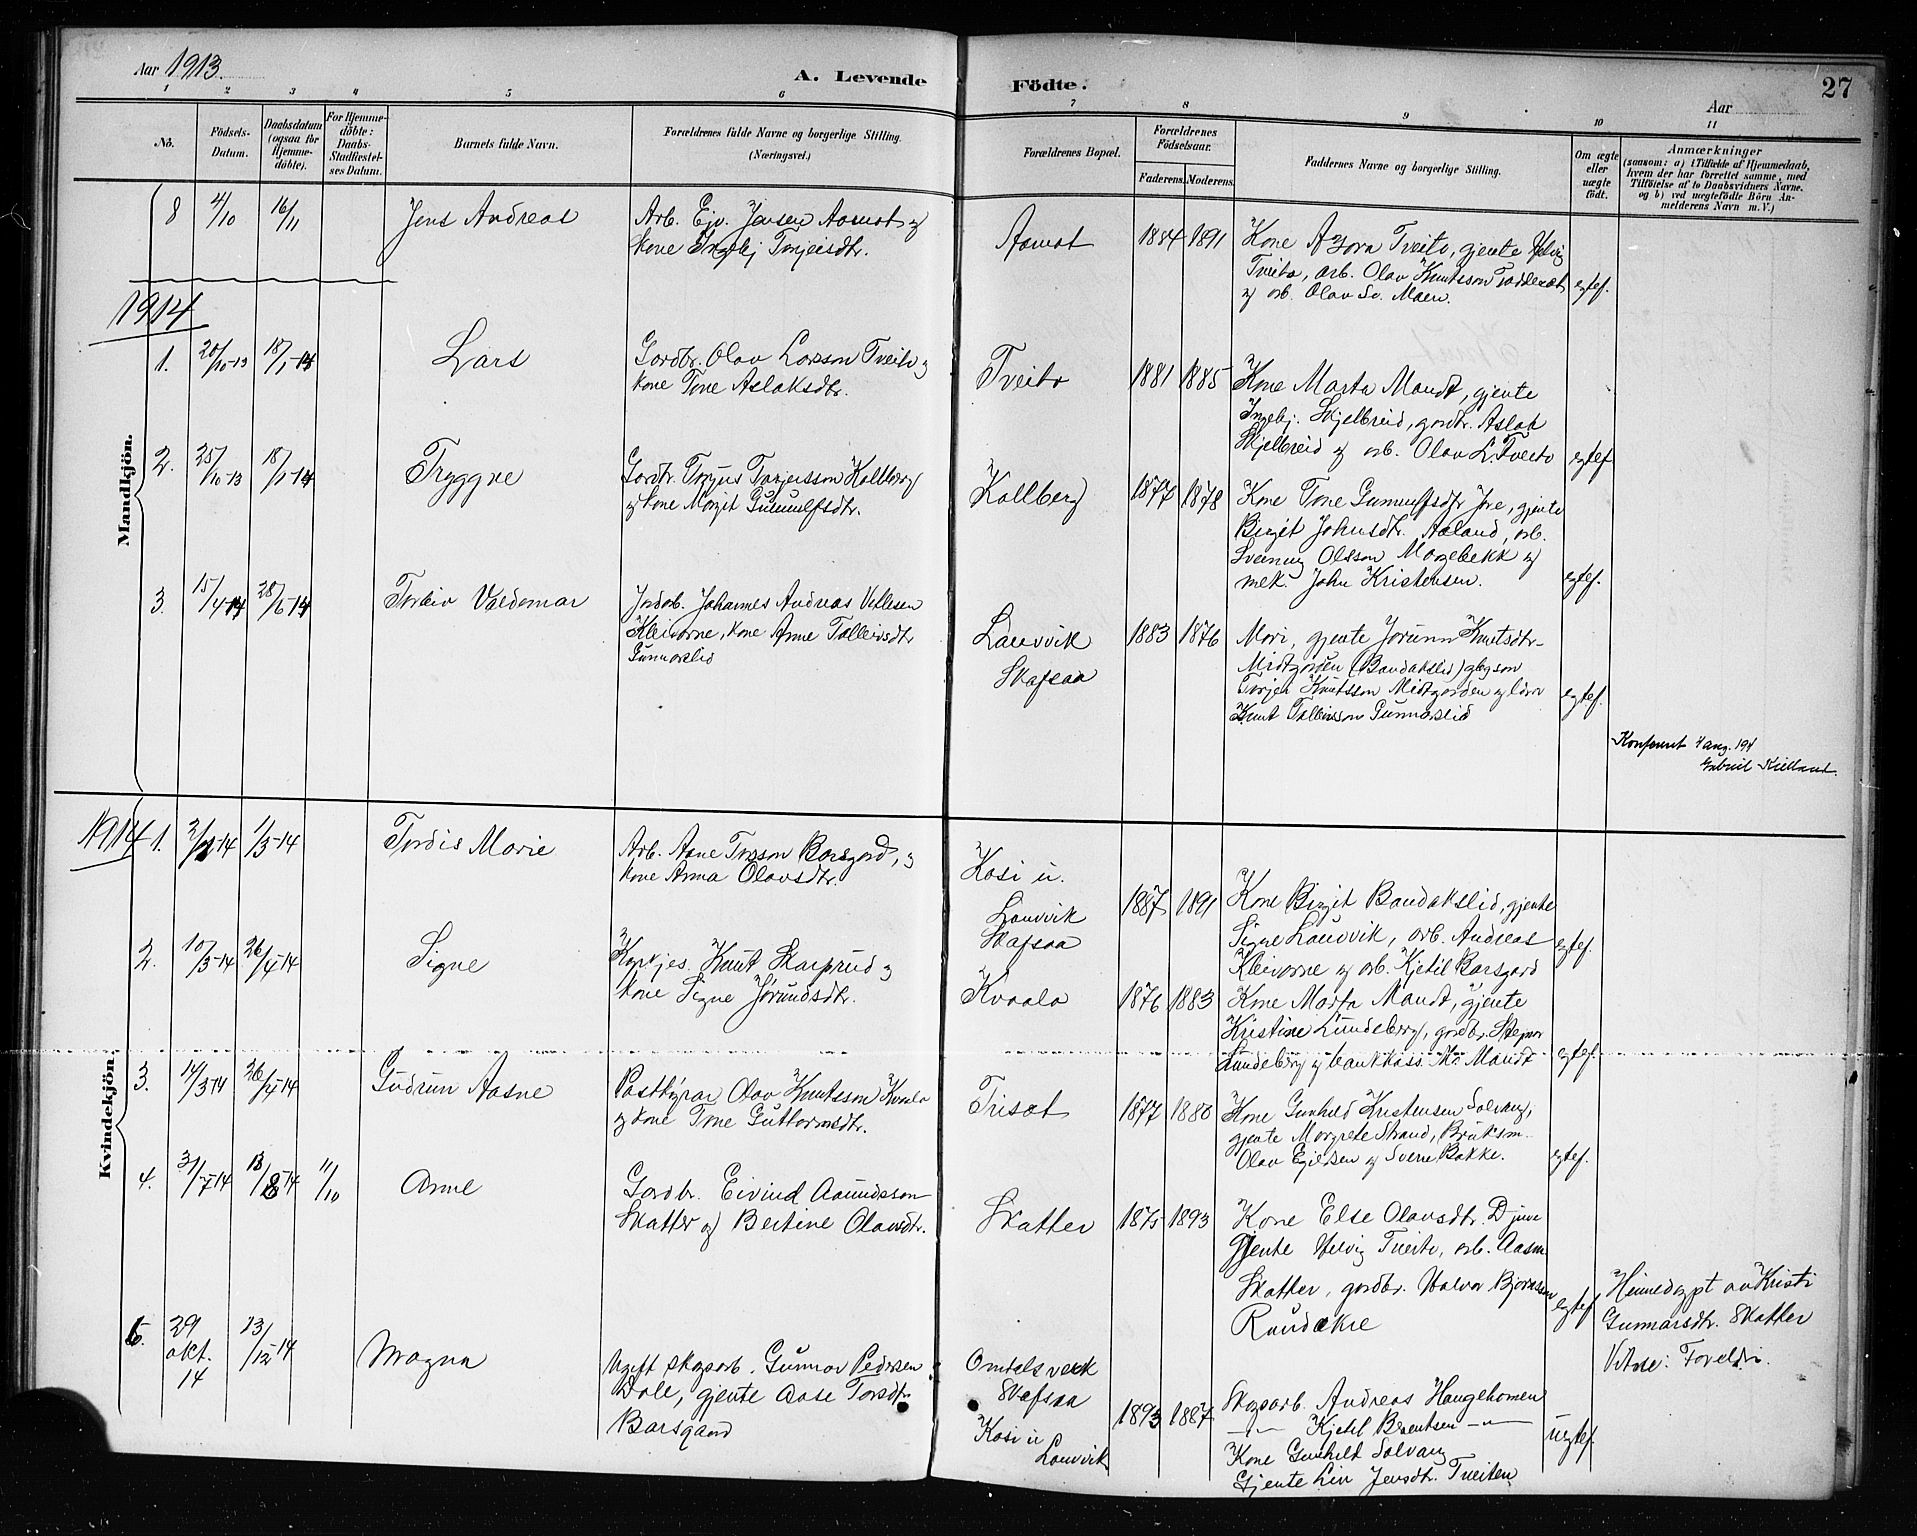 Aar 1913.
A. Levende Födte.
Aar
27
1 2 3 4 5 6 7 8 9 10 11
No.
Födsels-Datum.
Daabsdatum (ogsaa for Hjemmedöbte).
For Hjemmedöbte: Daabs-Stadfæstelses Datum.
Barnets fulde Navn.
Forældrenes fulde Navne og borgerlige Stilling. (Næringsvei.)
Forældrenes Bopæl.
Forældrenes Födselsaar.
Faderens.
Moderens.
Faddernes Navne og borgerlige Stilling.
Om ægte eller uægte födt.
Anmærkninger
(saasom: a) i Tilfælde af Hjemmedaab,
hvem der har forrettet samme, med
Tilföielse af to Daabsvidners Navne.
og b) ved uægtefödte Börn Anmelderens Navn m.V.)
Mandkjön.
8 4/10 16/11 Jens Andreas
Arb. Ejv. Jensen Aamot og
kone Ingebj Torjeisdtr.
Aamot 1884 1891
Kone Azora Tveito, gjente Helvig
Tveito, arb. Olav Knutsson
og arb. Olav Sv. Moen.
egtef.
1914
1. 20/10-13 18/1-14 Lars
Gardbr. Olav Larsson Tveito og
kone Tone Aslaksdtr.
Tveito 1881 1885
Kone Marta Mandt, gjente
Ingebj. Skjelbreid, gardbr. Aslak
Skjelbreid og arb. Olav L. Tveito
egtef
2. 25/10-13 18/1-14 Tryggve
Gardbr. Torjus Torjusson Kallberg
og kone Margit Gunnulfsdtr.
Kallberg 1877 1878
Kone Tone Gunnulfsdtr Jore, gjente
Birgit Johnsdtr. Aaland, arb.
Sveinung Olsson Morgebekk og
mek. John Kristensen.
egtef.
3. 15/4-14 28/6-14 Torleiv Valdemar
Jordarb. Johannes Andreas Villesen
Kleivarne, kone Anne Talleivsdtr
Gunnarslid
Lauvvik
Skafsaa
1883 1876
Mori, gjente Jorunn Knutsdtr
Midtgarden (Bandakslid) gbrson
Torjei Knutsson Midtgarden og lærar
Knut Talleivsson Gunnarslid
egtef.
Konfirmert 4 aug. 194
Gabriel Kielland.
Kvindekjön.
1914
1. 2/1-14 1/3-14 Tordis Marie
Arb. Aane Torsson Barsgard, og
kone Anna Olavsdtr.
Kosi u.
Lauvvik
Skafsaa
1887 1891
Kone Birgit Bandakslid, gjente
Signe Lauvvik, arb. Andreas
Kleivarne og arb. Kjetil Barsgard
egtef.
2. 10/3-14 26/4-14 Signe
Kyrkjes. Knut Skarprud og
kone Signe Jørundsdtr.
Kvaalo 1876 1883
Kone Marta Mandt, gjente
Kristine Lundeberg, gardbr. Steinar
Lundeberg og bankkass. Mandt
egtef.
3. 14/3-14 26/4-14 Gudrun Aasne
Postbyrar Olav Knutsson Kvaalo
og kone Tone Guttormsdtr.
Trisæt 1877 1880
Kone Gunhild Kristensen Solvang,
gjente Margrete Strand, Bruksm.
Olav Egildsen og Sverre Bakke.
egtef.
4. 31/7-14 13/8-14 11/10 Anne
Gardbr. Eivind Aamundsson
Skatter og Bertine Olavsdtr.
Skatter 1875 1893
Kone Else Olavsdtr. Djuve
Gjente Helvig Tveito, arb. Aasm.
Skatter, gardbr. Halvor Bjørnsson
Raudekre
egtef.
Heimedøypt av Kristi
Gunnarsdtr. Skatter
Vitne: Foreldri.
5. 29 okt. 14 13/12-14 Magna
Ugift skogarb. Gunnar Pedersen
Dale, gjente Aase Torsdtr.
Barsgaard
Omdalsverk
Skafsaa
Kosi u
Lauvvik
1893 1887
Skogarb. Andreas Haugehomen
-"- Kjetil Berntsen -"-
Kone Gunhilt Solvang
Gjente Liv Jensdtr. Tveiten
uegtef.